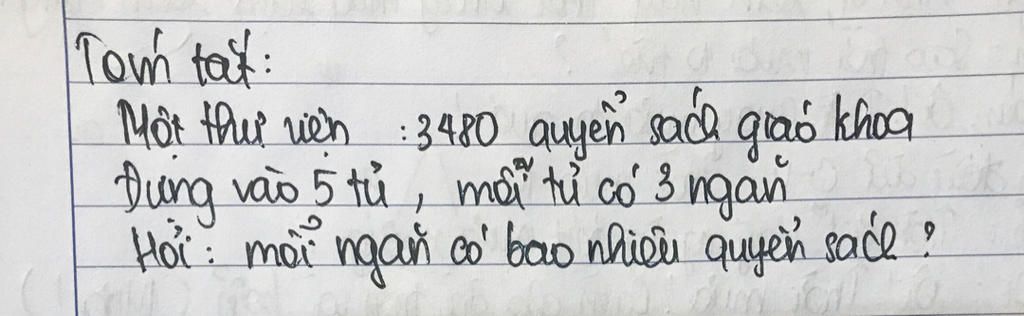 Tóm tắt:
Một thư viện : 3480 quyển sách giáo khoa
Đựng vào 5 tủ, mỗi tủ có 3 ngăn
Hỏi: mỗi ngăn có bao nhiêu quyển sách?